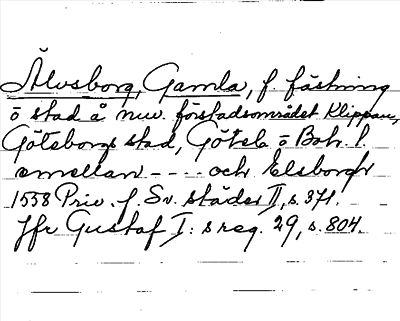 Älvsborg, Gamla, f. fästning
o stad å nuv. förstadsområdet Klippan,
Göteborgs stad, Götebo o Boh. l.
emellan - - - - och Elsborgh
1558 Priv. f. Sv. städer II, s. 371.
Jfr Gustaf I: s reg. 29, s. 804.